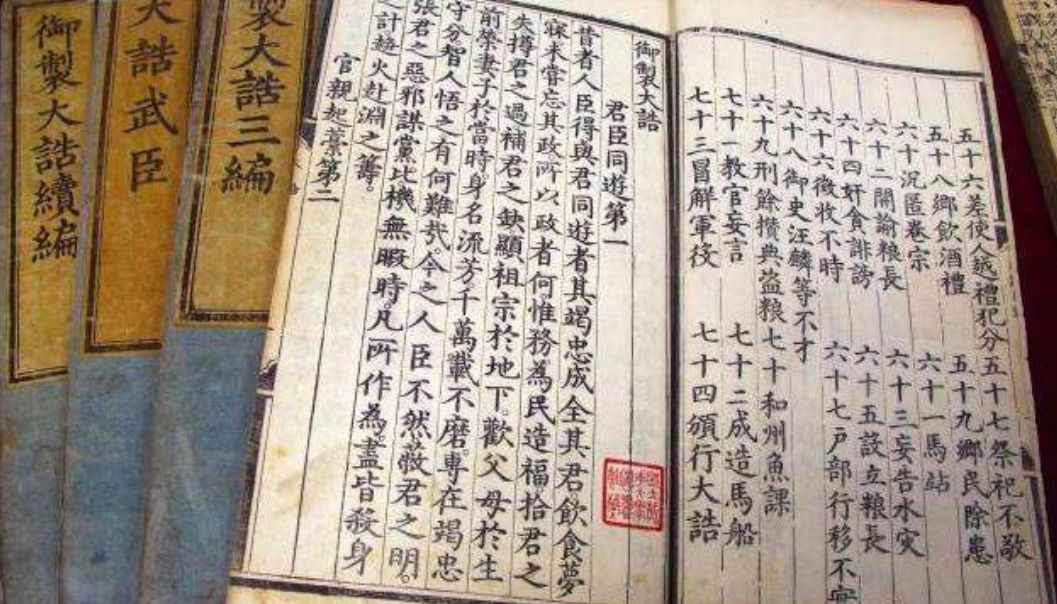 五十六差使人越禮犯分 五十七祭祀不敬
五十八鄉飲酒禮 五十九鄉民除患
六十沉匿卷宗 六十一馬站
六十二開諭粮長 六十三妄告水灾
六十四奸貪誹謗 六十五設立粮長
六十六徵收不時 六十七戶部行移不實
六十八御史汪麟等不才
六十九刑餘攢典盗粮 七十和州魚課
七十一教官妄言 七十二成造馬船
七十三冒解軍役 七十四頒行大誥
御製大誥
君臣同遊第一
昔者人臣得與君同遊者其竭忠成全其君飲食夢
寐未嘗忘其政所以政者何惟務為民造福拾君之
失撙君之過補君之缺顯祖宗於地下。歡父母於生
前榮妻子於當時。身名流芳千萬載不磨。專在竭忠
守分智人悟之有何難哉。今之人臣不然蔽君之明。
張君之惡邪謀黨比機無暇時。凡所作為。盡皆殺身
之計趋火赴淵之籌。
官親起藁第二
製大誥三編
大誥武臣
御製大誥續編